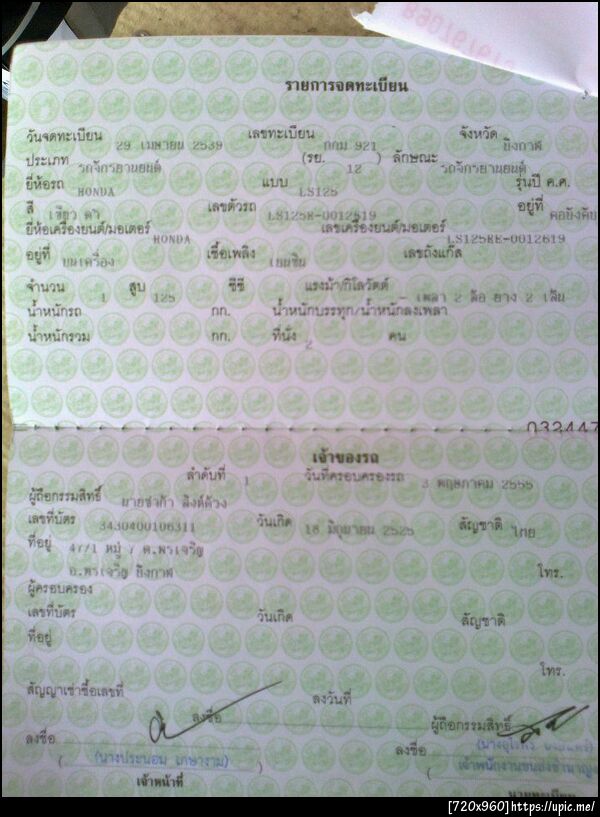 รายการจดทะเบียน
วันจดทะเบียน 29 เมษายน 2539 เลขทะเบียน กกม 921 จังหวัด บึงกาฬ
ประเภท รถจักรยานยนต์ (รย. 12 ) ลักษณะ รถจักรยานยนต์
ยี่ห้อรถ HONDA แบบ LS125 รุ่นปี ค.ศ.
สี เขียว ดำ เลขตัวรถ LS125R-0012619 อยู่ที่ คอบังคับ
ยี่ห้อเครื่องยนต์/มอเตอร์ HONDA เลขเครื่องยนต์/มอเตอร์ LS125RE-0012619
อยู่ที่ บนเครื่อง เชื้อเพลิง เบนซิน เลขถังแก๊ส
จำนวน 1 สูบ 125 ซีซี แรงม้า/กิโลวัตต์ - เพลา 2 ล้อ ยาง 2 เส้น
น้ำหนักรถ กก. น้ำหนักบรรทุก/น้ำหนักลงเพลา
น้ำหนักรวม กก. ที่นั่ง 2 คน
032447
เจ้าของรถ
ลำดับที่ 1 วันที่ครอบครองรถ 3 พฤษภาคม 2555
ผู้ถือกรรมสิทธิ์ สิงห์ด้วง
เลขที่บัตร 3430400106311 วันเกิด 18 มิถุนายน 2525 สัญชาติ ไทย
ที่อยู่ 47/1 หมู่ 7 ต.พรเจริญ
อ.พรเจริญ บึงกาฬ โทร.
ผู้ครอบครอง
เลขที่บัตร วันเกิด สัญชาติ
ที่อยู่
โทร.
สัญญาเช่าซื้อเลขที่ ลงวันที่
ลงชื่อ ผู้ถือกรรมสิทธิ์
ลงชื่อ ลงชื่อ
(นางประนอม เกษางาม)
เจ้าหน้าที่ เจ้าพนักงานขนส่งชำนาญ
นายทะเบียน
[720x960]https://upic.me/